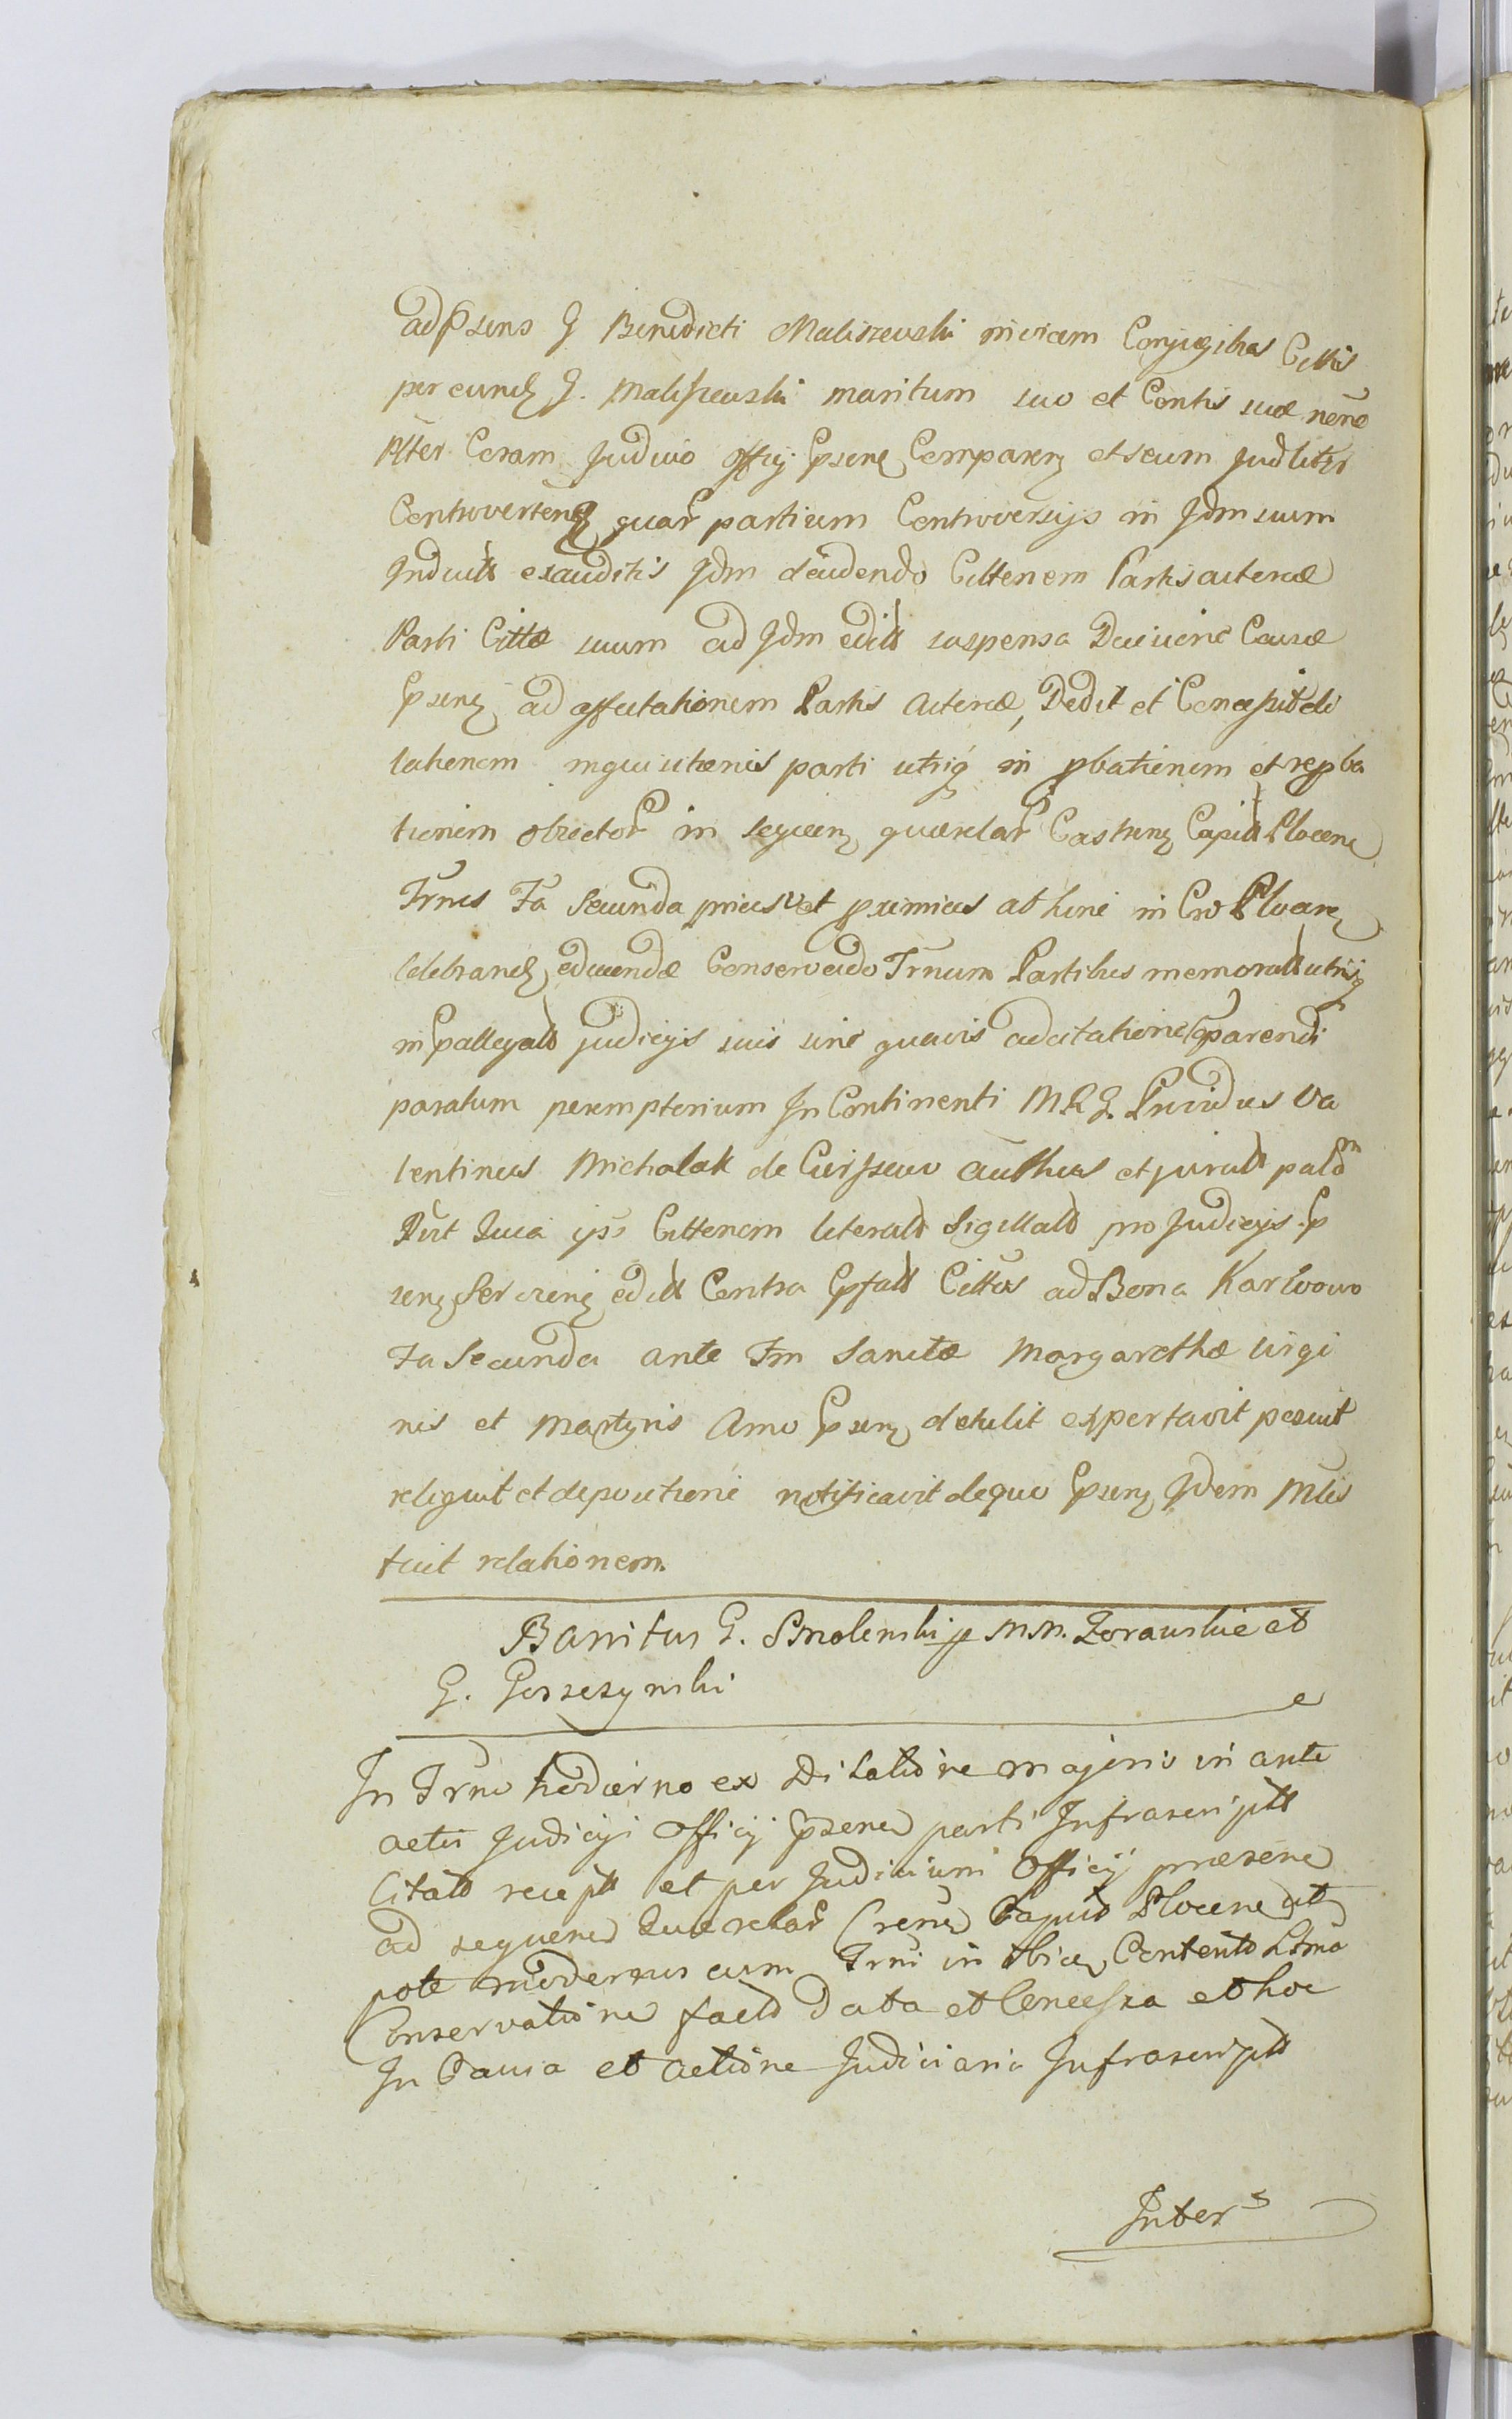 ad psens G Benedicti Maliszewski invicem Conjugibus Cittis
per eund G. Maliszewski maritum suo et Contis suæ nene
Plter Coram Judicio Officij psenz Comparen et secum Judliter
Controverten quar partium Controversijs in Jdm suum
Induct exauditis Jdm decidendo Cittonem Partis actoreæ
Parti Cittæ suum ad Jdm edit suspensa Decisione Causæ
psenz ad affectationem Partis Actoreæ, Dedit et Concessit di
lationem inquisitionis parti utriq in pbationem et repba
tionem objector in sequen querelar Castren Capit Plocen
Trnis Fa Secunda prius et proximius ab hinc in Cro Plocen
Celebrand educendæ Conservando Trnum Partibus memoratt utrisq
in pallegatt judicijs suis sine quavis adcitatione parendi
paratum peremptorium In Continenti M R G. Providus Va
lentinus Michalak de authus et jurat palam
Rit Quia ipse Cittonem literatt Sigillatt pro Judicijs p
senz Servien edit Contra pfatt Cittos ad Bona Karwowo
Fa Secunda ante Fm Sanctæ Margarethæ Virgi
nis et Martyris Anno psenz detulit exportavit posuit
reliquit et depositione notificavit de quo psenz Jdem Mtis
fecit relationem.
Banitus G. Smolenski p M.M. Zorawskie et
G. Gorszczynski
In Trno hodierno ex Dilatione majoris in ante
actis Judicij Officij psene parti Infrascriptt
Citatt receptt et per Judicium Officij præsene
ad sequene Querelar Crene Capit Plocene ut
pote modernus cum Trni in Contento
Conservatione fact data et Concessa et hoc
In Causa et actione Judiciaria Infrascriptt
Inter